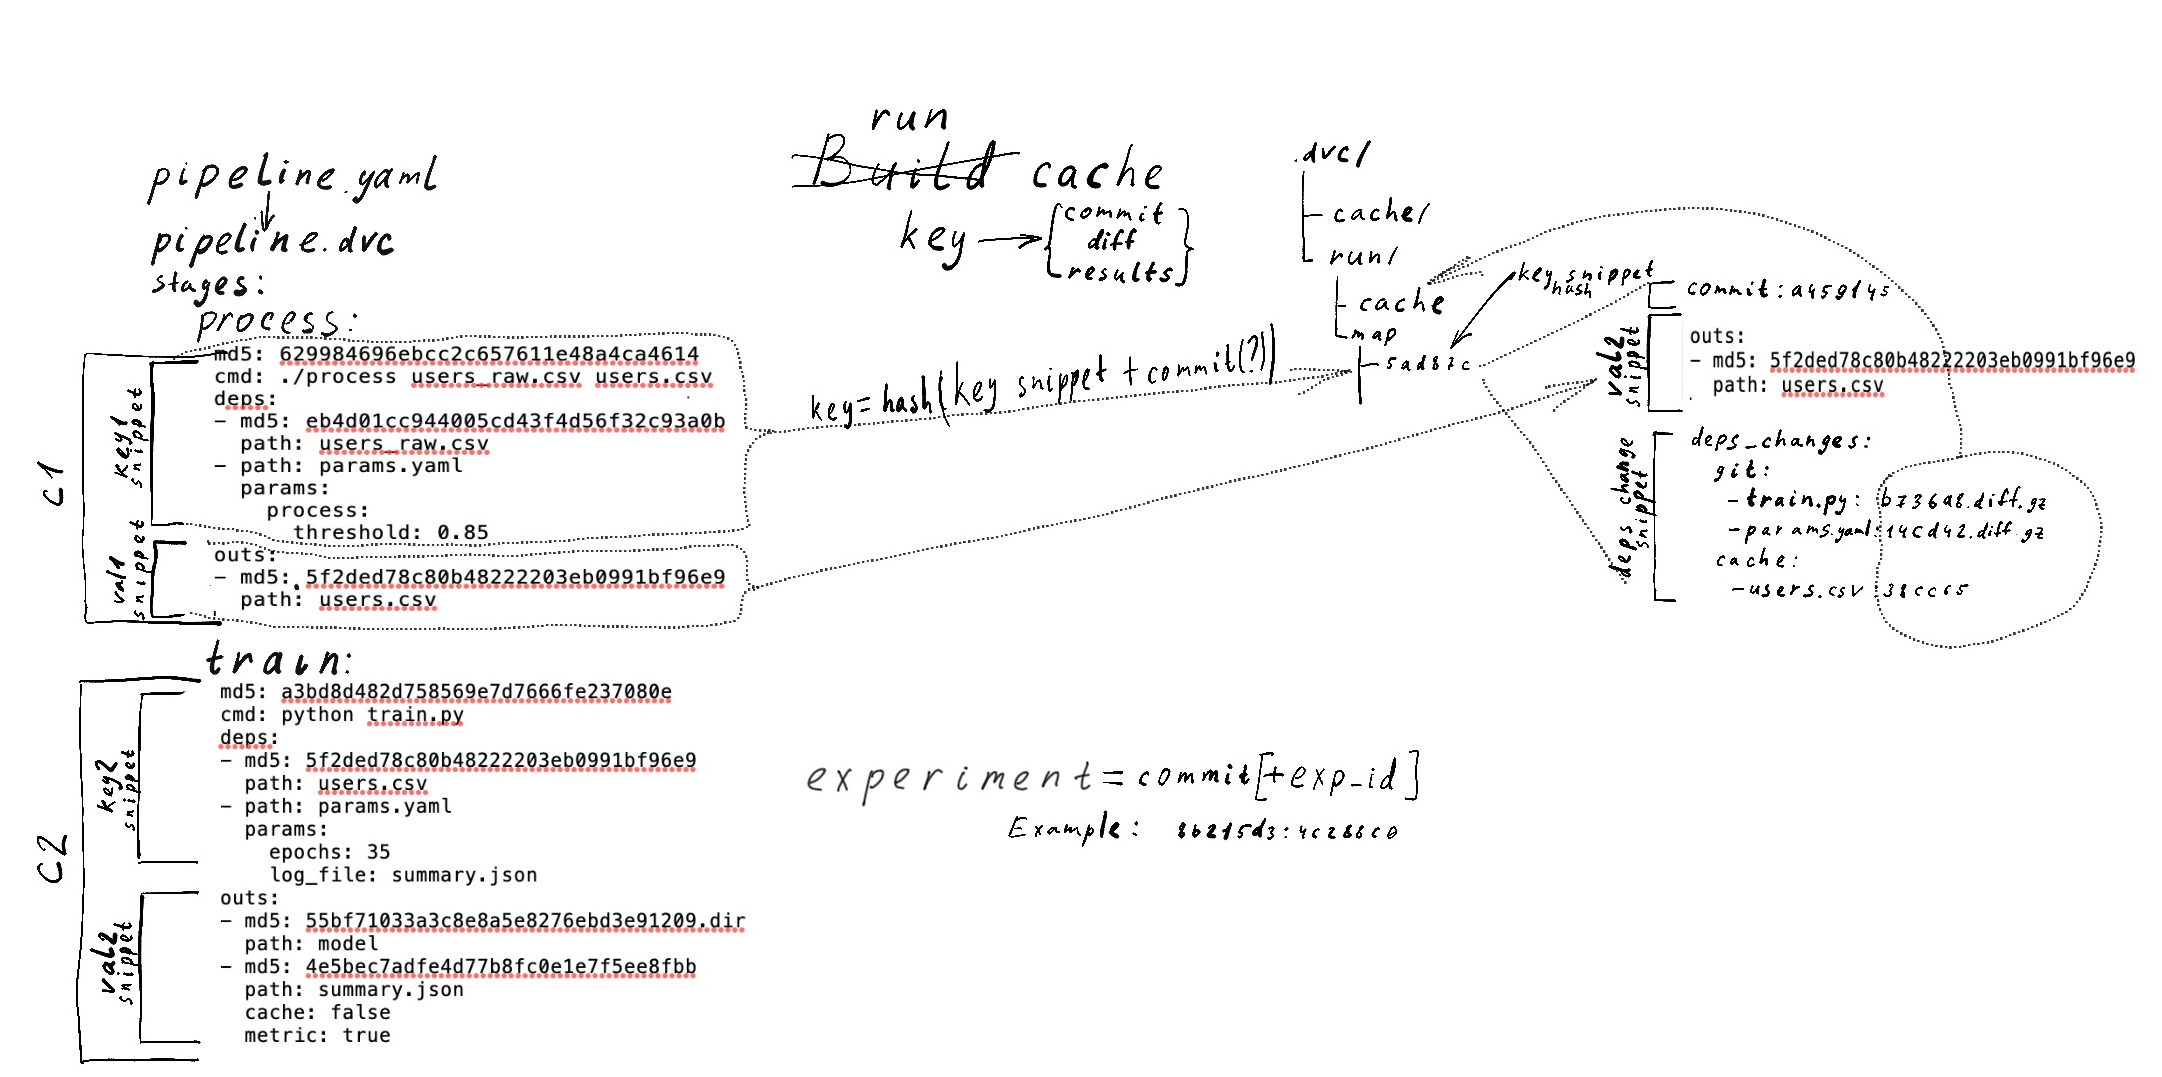 pipeline.yaml
pipeline.dvc
stages:
process:
md5: 629984696ebcc2c657611e48a4ca4614
cmd: ./process users_raw.csv users.csv
deps:
- md5: eb4d01cc944005cd43f4d56f32c93a0b
path: users_raw.csv
- path: params.yaml
params:
process:
threshold: 0.85
outs:
- md5: 5f2ded78c80b48222203eb0991bf96e9
path: users.csv
C1
key1
snippet
val1
snippet
train:
md5: a3bd8d482d758569e7d7666fe237080e
cmd: python train.py
deps:
- md5: 5f2ded78c80b48222203eb0991bf96e9
path: users.csv
- path: params.yaml
params:
epochs: 35
log_file: summary.json
outs:
- md5: 55bf71033a3c8e8a5e8276ebd3e91209.dir
path: model
- md5: 4e5bec7adfe4d77b8fc0e1e7f5ee8fbb
path: summary.json
cache: false
metric: true
C2
key2
snippet
val2
snippet
run
Build cache
key → { commit
diff
results }
key = hash(key snippet + commit(?))
experiment = commit[+exp_id]
Example:
.dvc/
cache/
run/
cache
map
key snippet
hash
val2
snippet
outs:
- md5: 5f2ded78c80b48222203eb0991bf96e9
path: users.csv
commit:
deps change
snippet
deps_changes:
git:
- train.py: b736a8.diff.gz
- params.yaml: 14cd42.diff.gz
cache:
- users.csv: